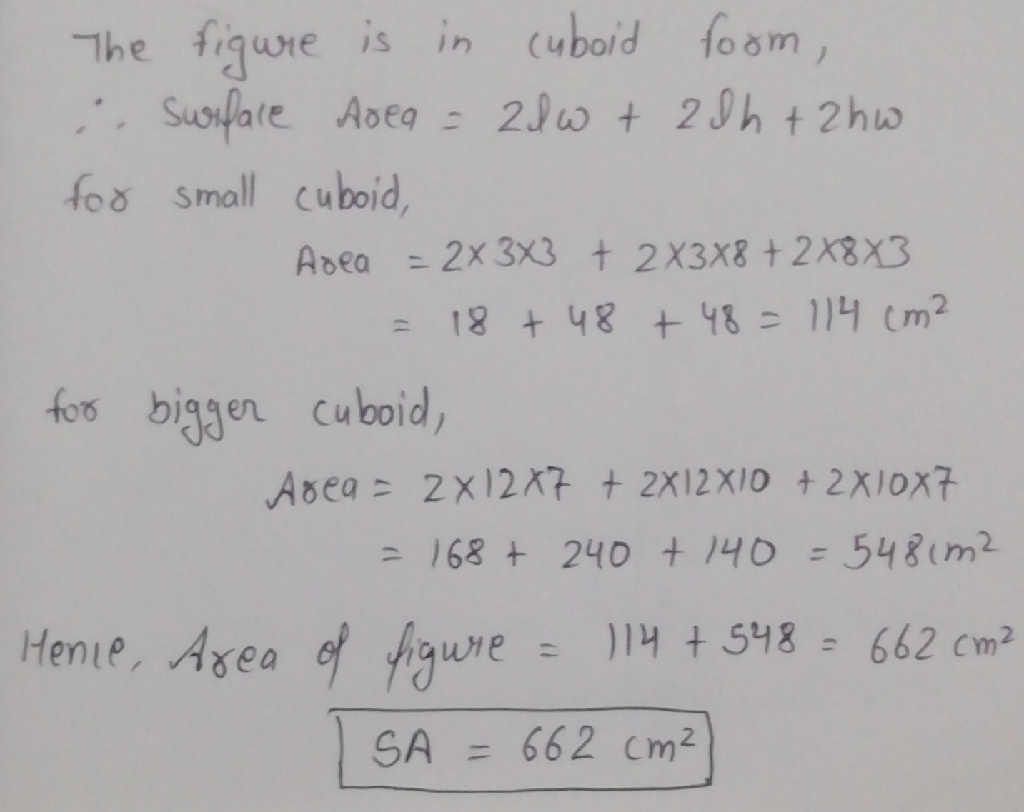 The figure is in cuboid form,
∴ Surface Area = 2lw + 2lh + 2hw
for small cuboid,
Area = 2×3×3 + 2×3×8 + 2×8×3
= 18 + 48 + 48 = 114 cm²
for bigger cuboid,
Area = 2×12×7 + 2×12×10 + 2×10×7
= 168 + 240 + 140 = 548 cm²
Hence, Area of figure = 114 + 548 = 662 cm²
SA = 662 cm²